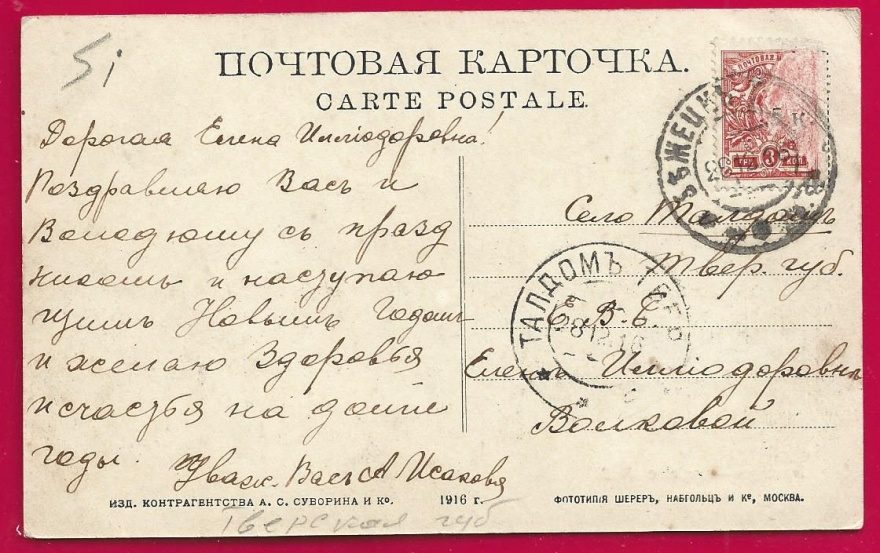 5i
ПОЧТОВАЯ КАРТОЧКА.
CARTE POSTALE.
Дорогая Елена Иллiодоровна!
Поздравляю Васъ и
Володюшу съ празд
никомъ и наступаю
щимъ Новымъ Годомъ
и желаю Здоровья
и счастья на долгiе
годы.
Уваж. Васъ А Исакова
Село Талдомъ
Твер. губ.
Е. В. Б.
Еленѣ Иллiодоровнѣ
Волковой
ПОЧТОВАЯ
ТРИ 3 КОП
БѢЖЕЦКЪ
ТАЛДОМЪ ТВЕР
28 12 16
ИЗД. КОНТРАГЕНТСТВА А. С. СУВОРИНА И Ко. 1916 г.
ФОТОТИПІЯ ШЕРЕРЪ, НАБГОЛЬЦЪ И Ко, МОСКВА.
Тверская губ